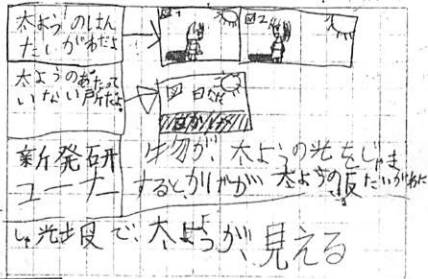 太ようのはん
たいがわだよ
図1
図2
太ようのあたって
いない所だよ
図
日なた
新発研
コーナー
物が、太ようの光をじゃま
するとかげが太ようの反たいがわに
しゃ光板で、太ようが、見える